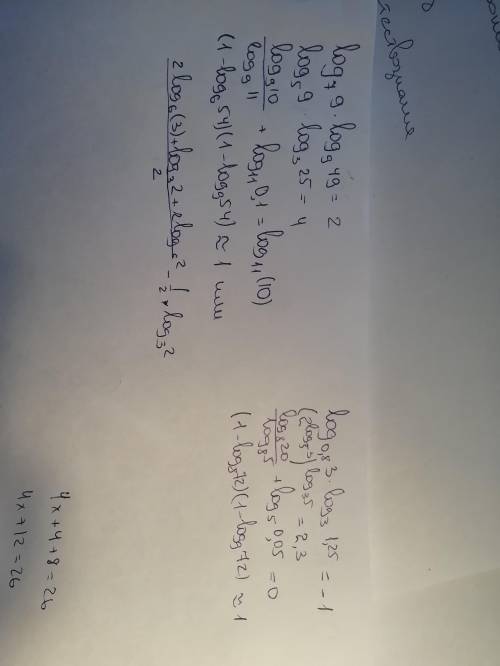 ствознания
log₇9 · log₉49 = 2
log₅9 · log₃25 = 4
log₉10 / log₉11 + log₁₁0,1 = log₁₁(10)
(1-log₆54)(1-log₉54) ≈ 1 или
(2log₆(3)+log₃2+2log₆2) / 2 - 1/2 · log₃2
log₀,₈3 · log₃1,25 = -1
(2^log₅3)^log₃5 = 2,3
log₈20 / log₈5 + log₅0,05 = 0
(1-log₈72)(1-log₉72) ≈ 1
4x+4+8=26
4x+12=26